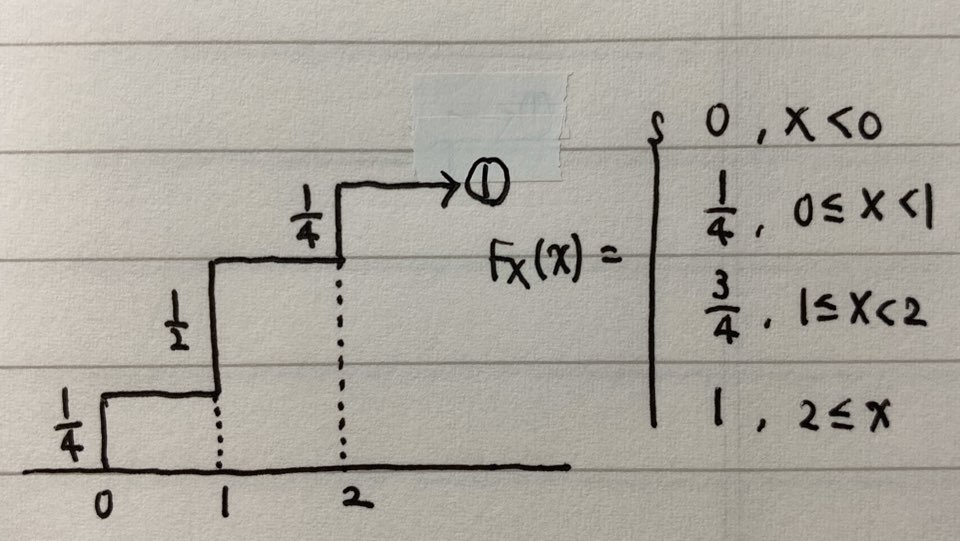 ①
1/4
1/2
1/4
0 1 2
F_X(x) = {
0 , x < 0
1/4 , 0 ≤ x < 1
3/4 , 1 ≤ x < 2
1 , 2 ≤ x